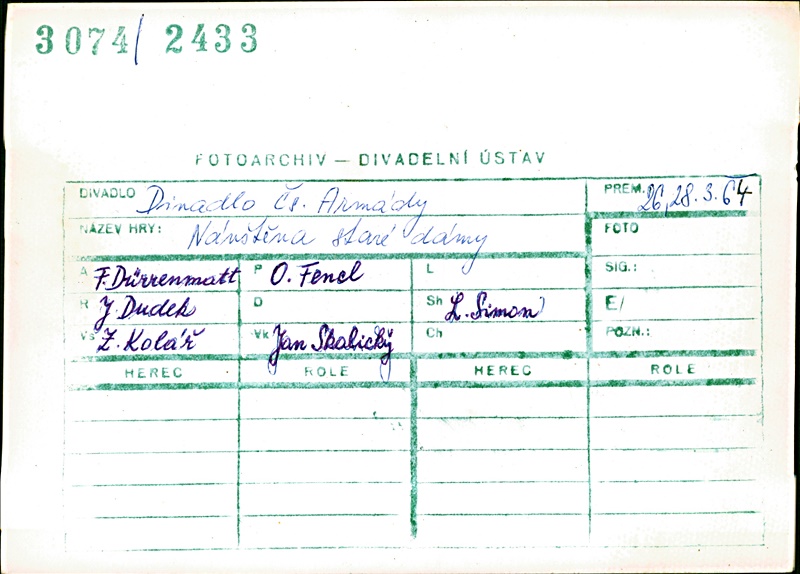 3074/ 2433
FOTOARCHIV — DIVADELNÍ ÚSTAV
DIVADLO Divadlo Čs. Armády PREM. 26, 28. 3. 64
NÁZEV HRY: Návštěva staré dámy FOTO
A F. Dürrenmatt P O. Fencl L SIG.:
R J. Dudek D Sh L. Simon E/
Vs Z. Kolář Vk Jan Skalický Ch POZN.:
HEREC ROLE HEREC ROLE